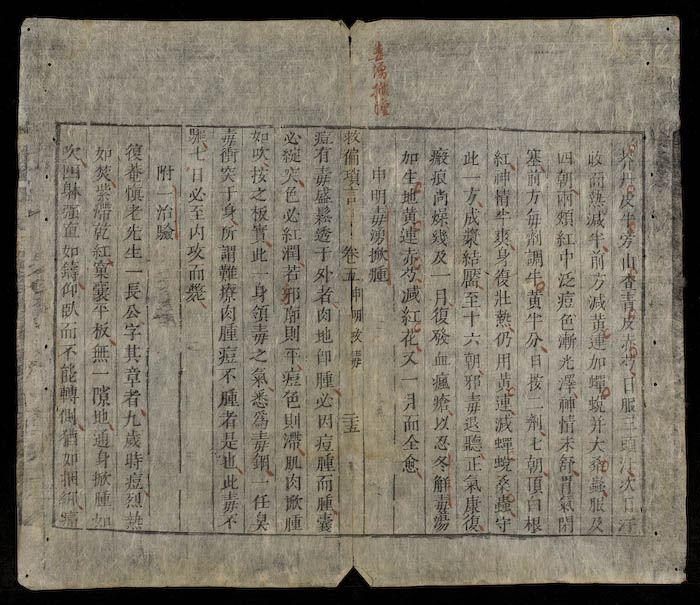 毒湧掀腫
丹皮牛旁山查青皮赤芍日服三頭汁次日
收而熱減半前方減黃連加蟬蛻并大桑蟲服及
四朝兩頰紅中泛痘色漸光澤神情未舒胃氣閉
塞前方每劑調牛黃半分日按二劑七朝頂白根
紅神情半爽身復壯熱仍用黃連減蟬蛻桑蟲守
此一方成漿結靨至十六朝邪毒退聽正氣康復
瘢痕尚燥幾及一月復發血瘋瘡以忍冬解毒湯
加生地黃連赤芍減紅花又一月而全愈
申明毒湧掀腫
救偏瑣言 卷五 申明攻毒 二五
痘有毒盛鬆透于外者肉地卽腫必因痘腫而腫囊
必綻突色必紅潤若邪廓則平痘色則滯肌肉掀腫
如吹按之板實此一身領毒之氣悉爲毒錮一任臭
毒衝突于身所謂難療肉腫痘不腫者是也此毒不
七日必至内攻而斃
附一治驗
復菴慎老先生一長公字其章者九歲時痘烈熱
如焚紫滯乾紅窠囊平板無一隙地通身掀腫如
吹四躰强直如鑄仰臥而不能轉側猶如捆綁痛